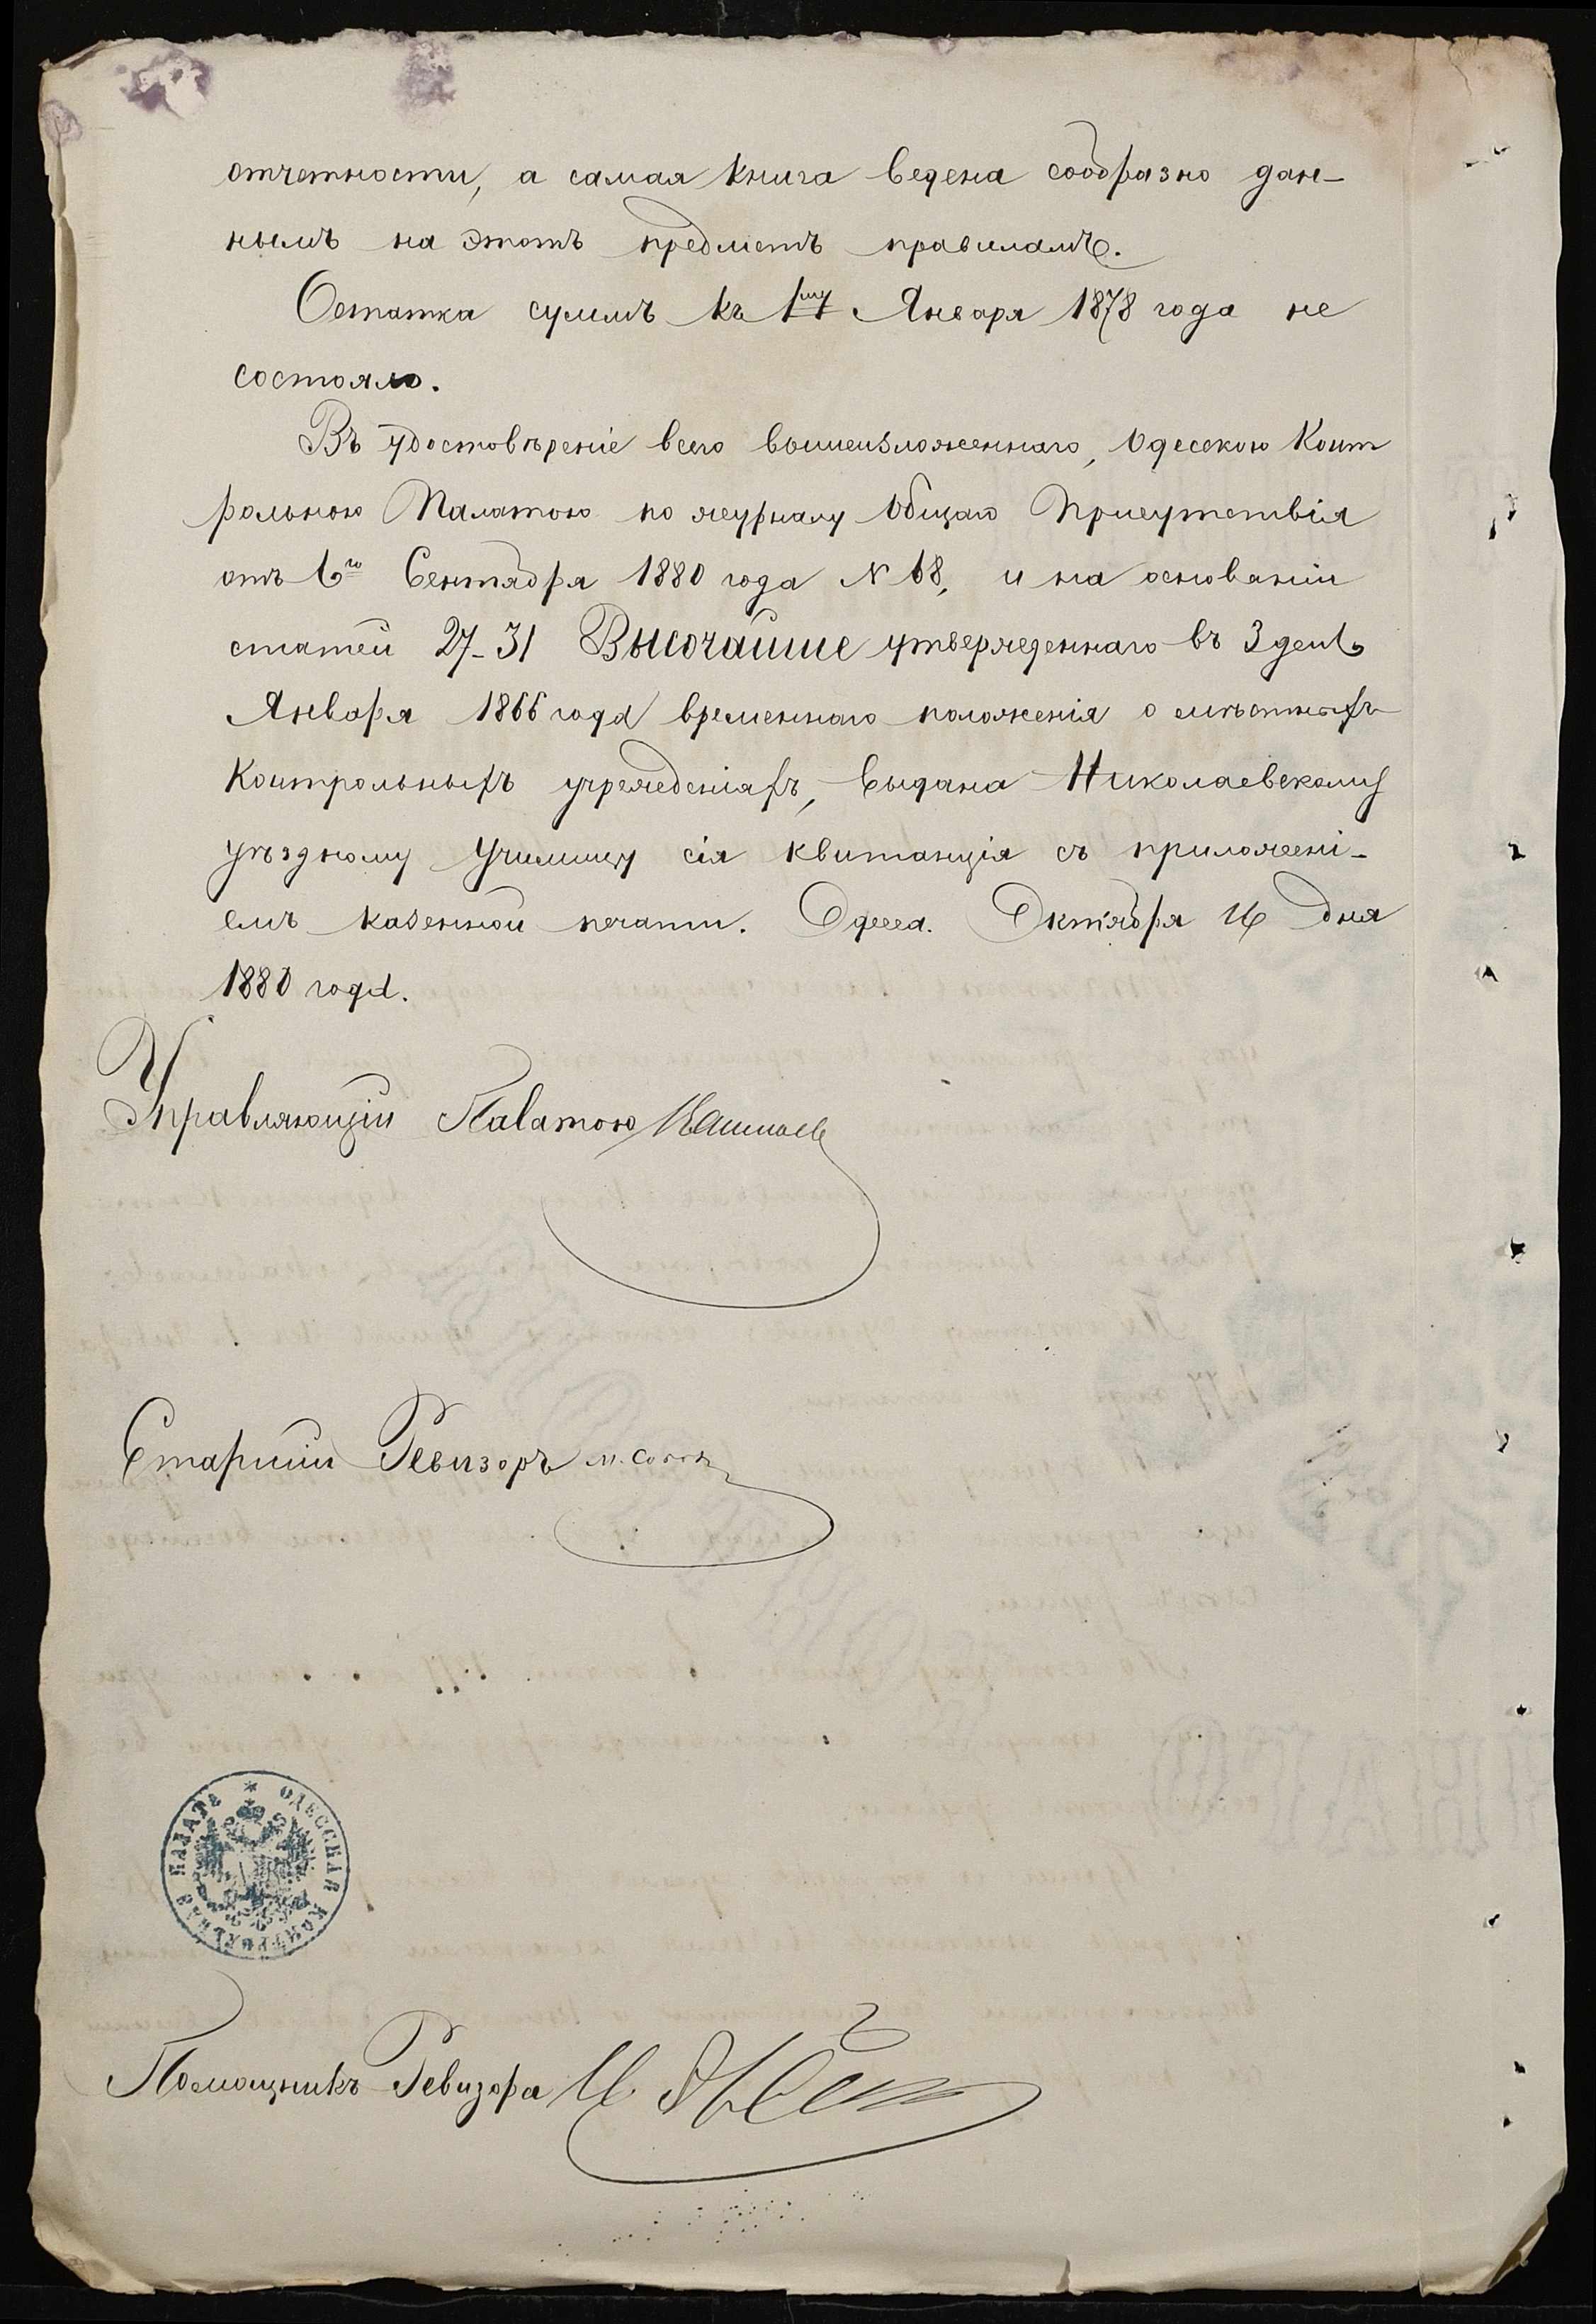 отчетности, а самая книга ведена сообразно дан-
нымъ на этотъ предметъ правиламъ.
Остатка суммъ къ 1му Января 1878 года не
состояло.
Въ удостовѣреніе всего вышеизложеннаго, Одесскою Конт
рольною Палатою по журналу Общаго Присутствія
отъ 1го Сентября 1880 года № 68, и на основаніи
статей 27-31 Высочайше утвержденнаго въ 3 день
Января 1866 года временнаго положенія о мѣстныхъ
Контрольныхъ учрежденіяхъ, выдана Николаевскому
уѣздному Училищу сія квитанція съ приложені-
емъ казенной печати. Одесса. Октября 16 дня
1880 года.
Управляющій Палатою
Старшій Ревизоръ
ОДЕССКАЯ КОНТРОЛЬНАЯ ПАЛАТА
Помощникъ Ревизора